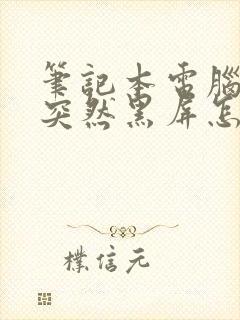 筆記本電腦
突然黑屏怎
樸信元